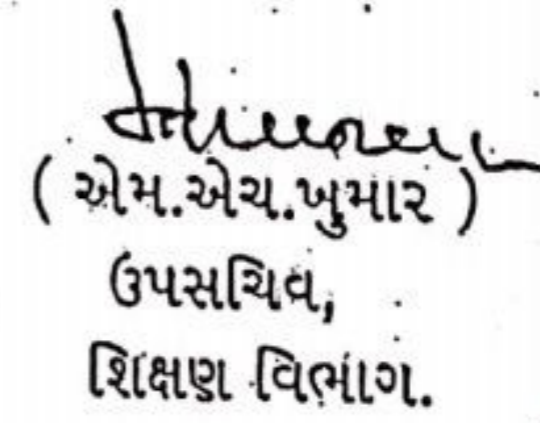 ( એમ.એચ.ખુમાર )
ઉપસચિવ,
શિક્ષણ વિભાગ.